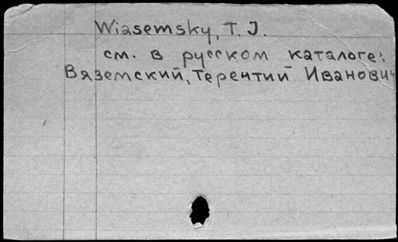 Wiasemsky, T. J.
см. в русском каталоге:
Вяземский, Терентий Иванович